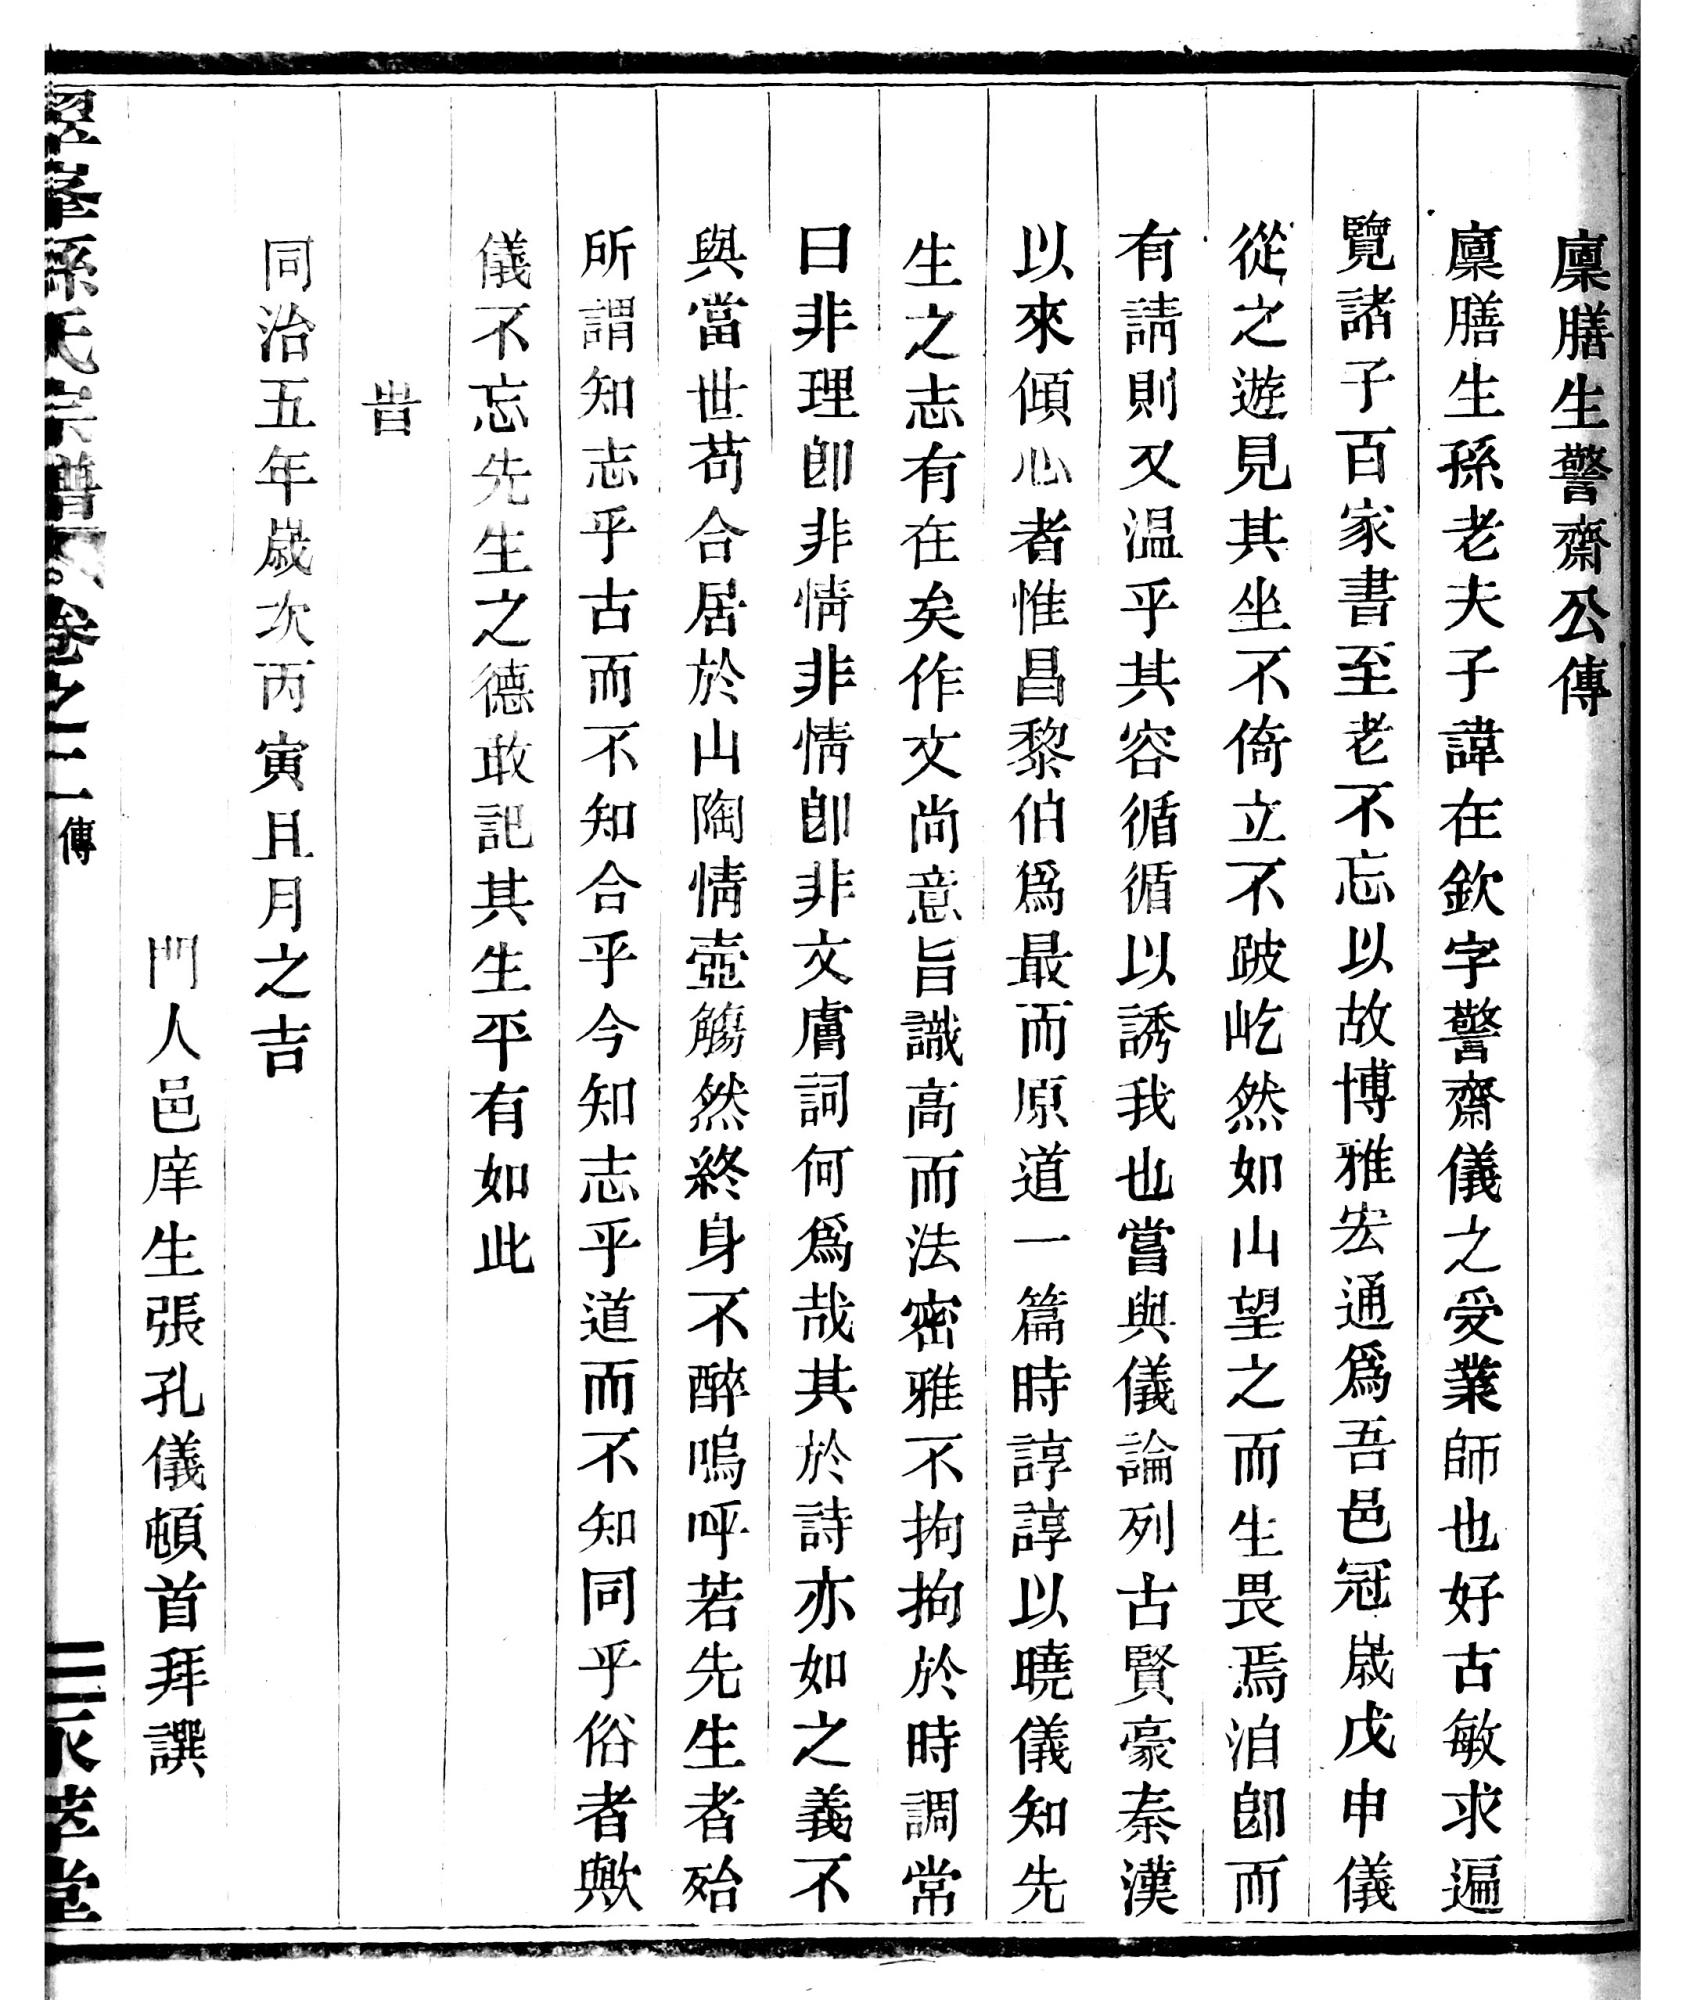 廩膳生警齋公傳
廩膳生孫老夫子諱在欽字警齋儀之受業師也好古敏求遍
覽諸子百家書至老不忘以故博雅宏通爲吾邑冠歲戊申儀
從之遊見其坐不倚立不跛屹然如山望之而生畏焉洎卽而
有請則又温乎其容循循以誘我也嘗與儀論列古賢豪秦漢
以來傾心者惟昌黎伯爲最而原道一篇時諄諄以曉儀知先
生之志有在矣作文尚意旨識高而法密雅不拘拘於時調常
曰非理卽非情非情卽非文膚詞何爲哉其於詩亦如之義不
與當世苟合居於山陶情壺觴然終身不醉嗚呼若先生者殆
所謂知志乎古而不知合乎今知志乎道而不知同乎俗者歟
儀不忘先生之德敢記其生平有如此
旹
同治五年歲次丙寅且月之吉
門人邑庠生張孔儀頓首拜譔
翠峯孫氏宗譜 卷之二 傳 三 永萃堂